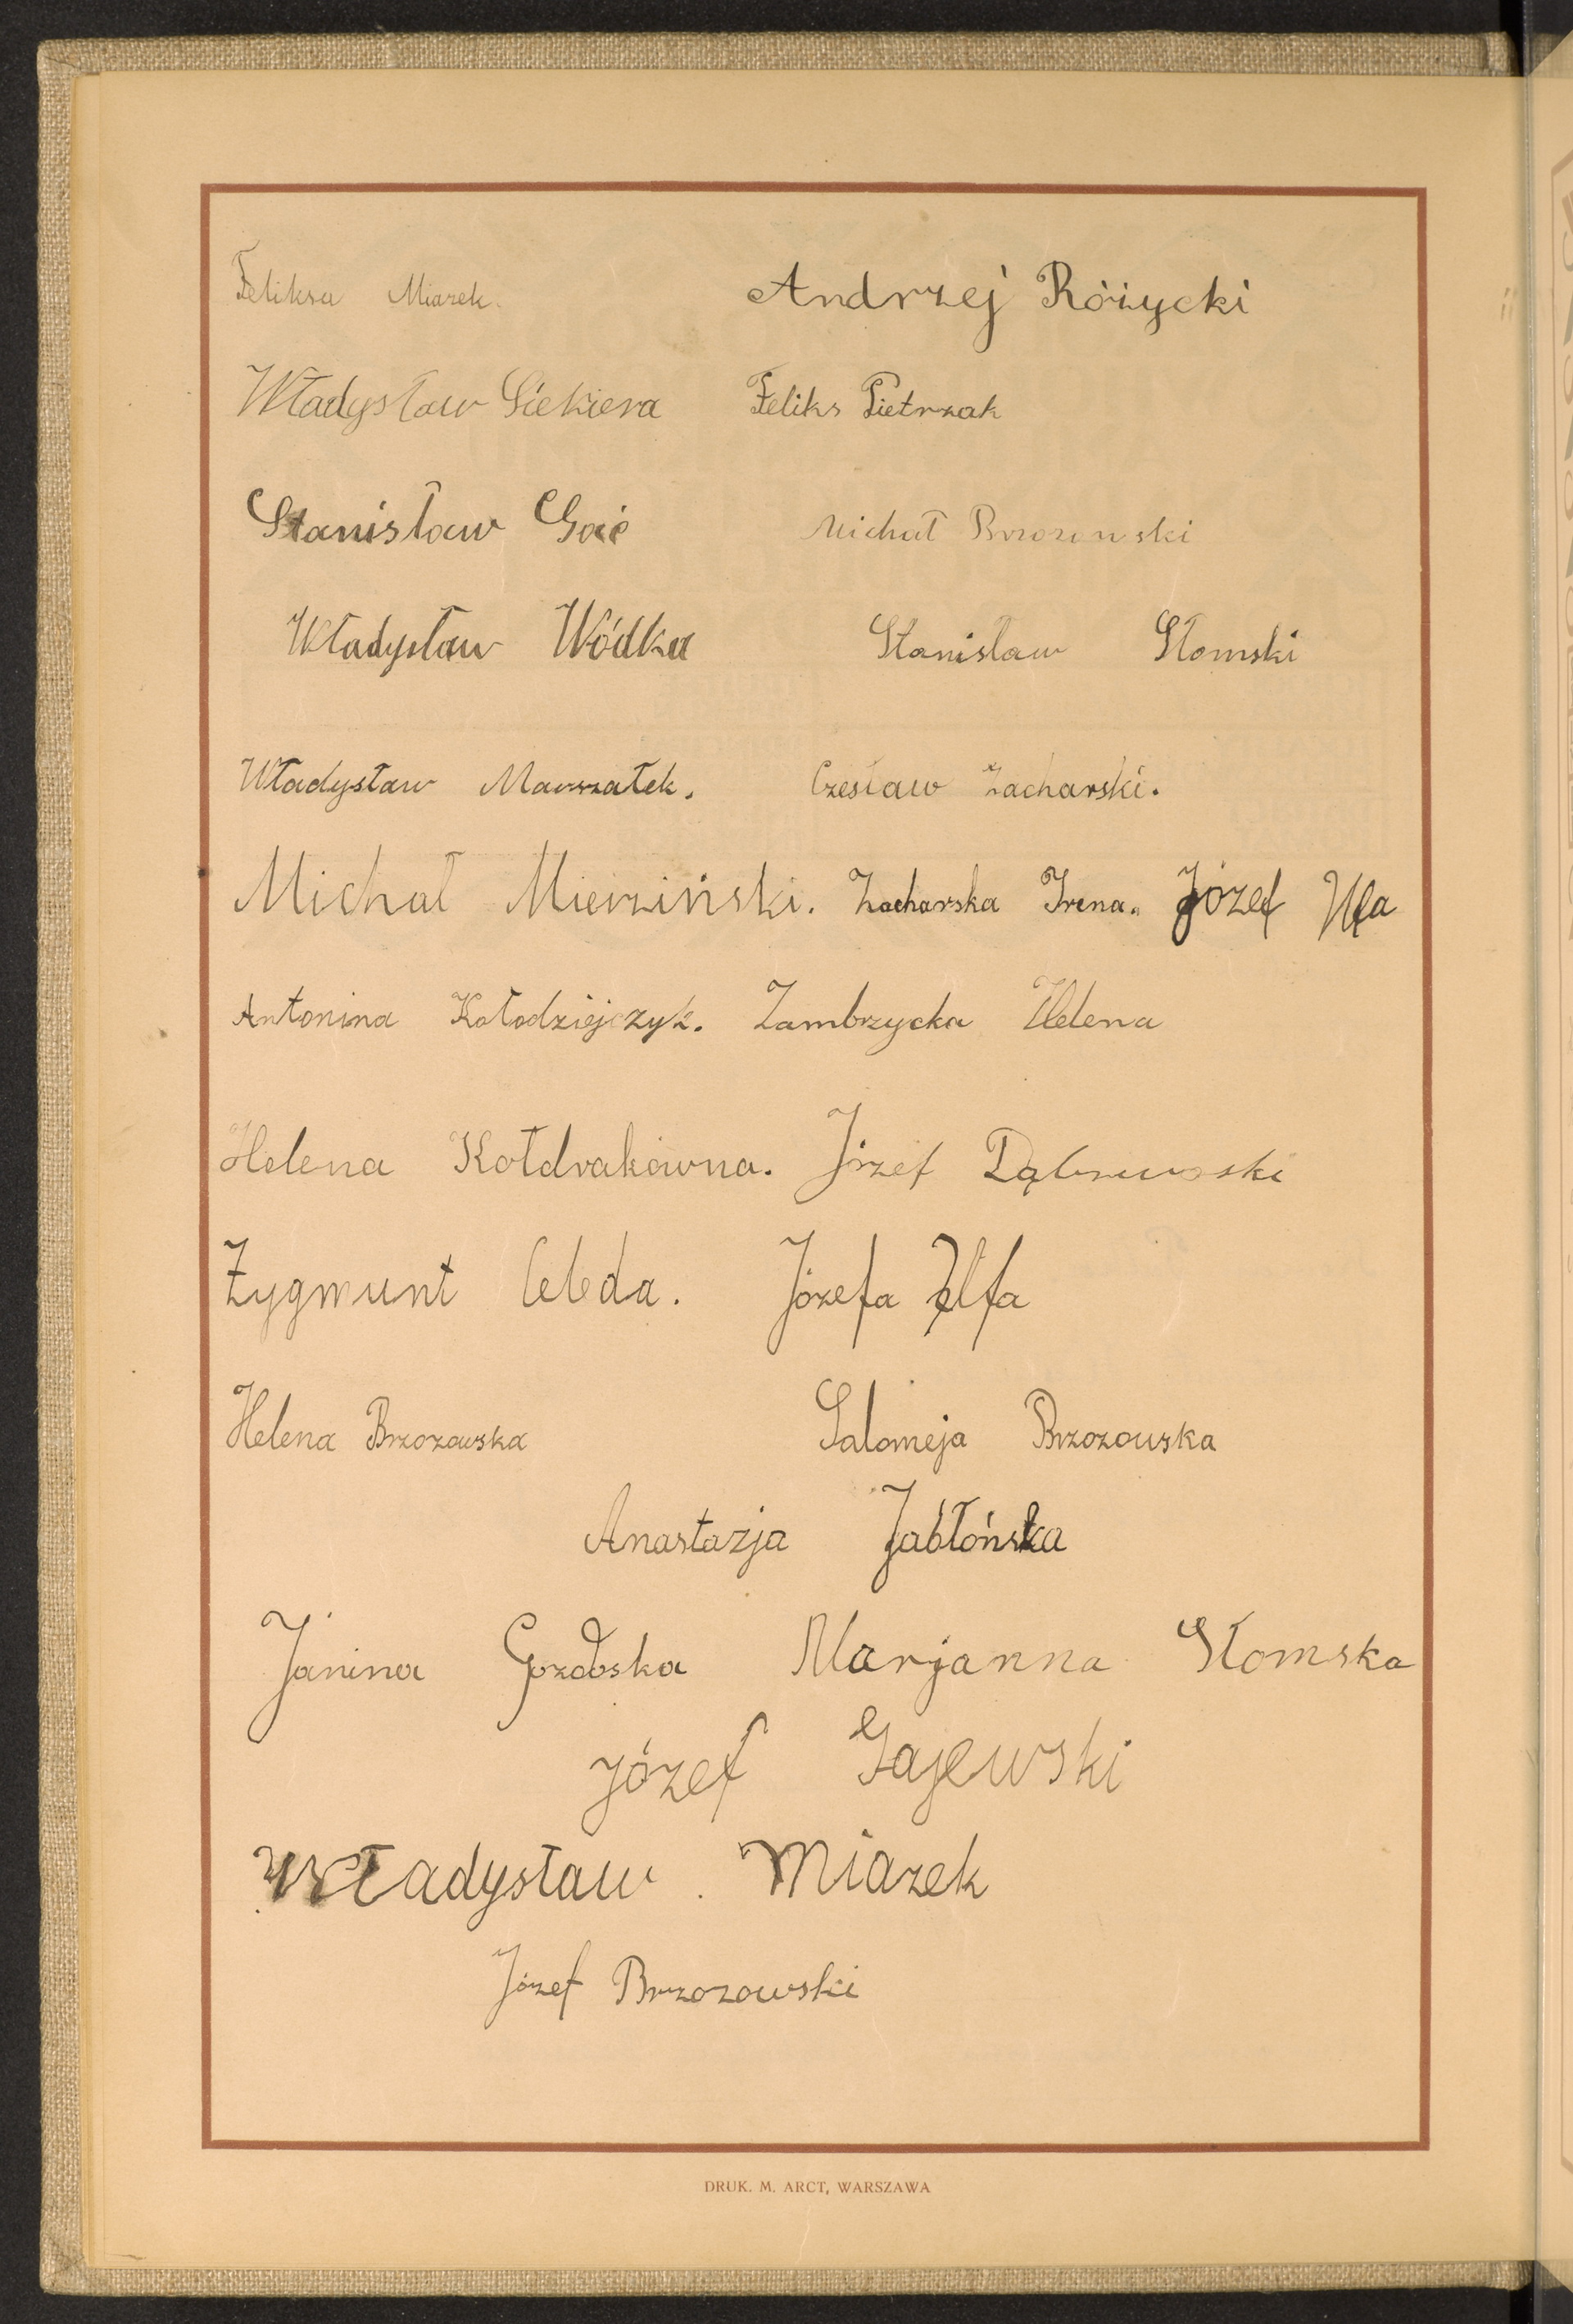 Feliksa Miazek. Andrzej Różycki
Władysław Siekiera Feliks Pietrzak
Stanisław Gać Michał Brzozowski
Władysław Wódka Stanisław Słomski
Władysław Marszałek. Czesław Zacharski.
Michał Mierziński. Zacharska Irena. Józef
Antonina Kołodziejczyk. Zambrzycka Helena
Helena Kołdrakówna. Józef Dąbrowski
Zygmunt Celeda. Józefa
Helena Brzozowska Salomeja Brzozowska
Anastazja Jabłońska
Janina Marjanna Słomska
Józef Gajewski
Władysław Miazek
Józef Brzozowski
DRUK. M. ARCT, WARSZAWA